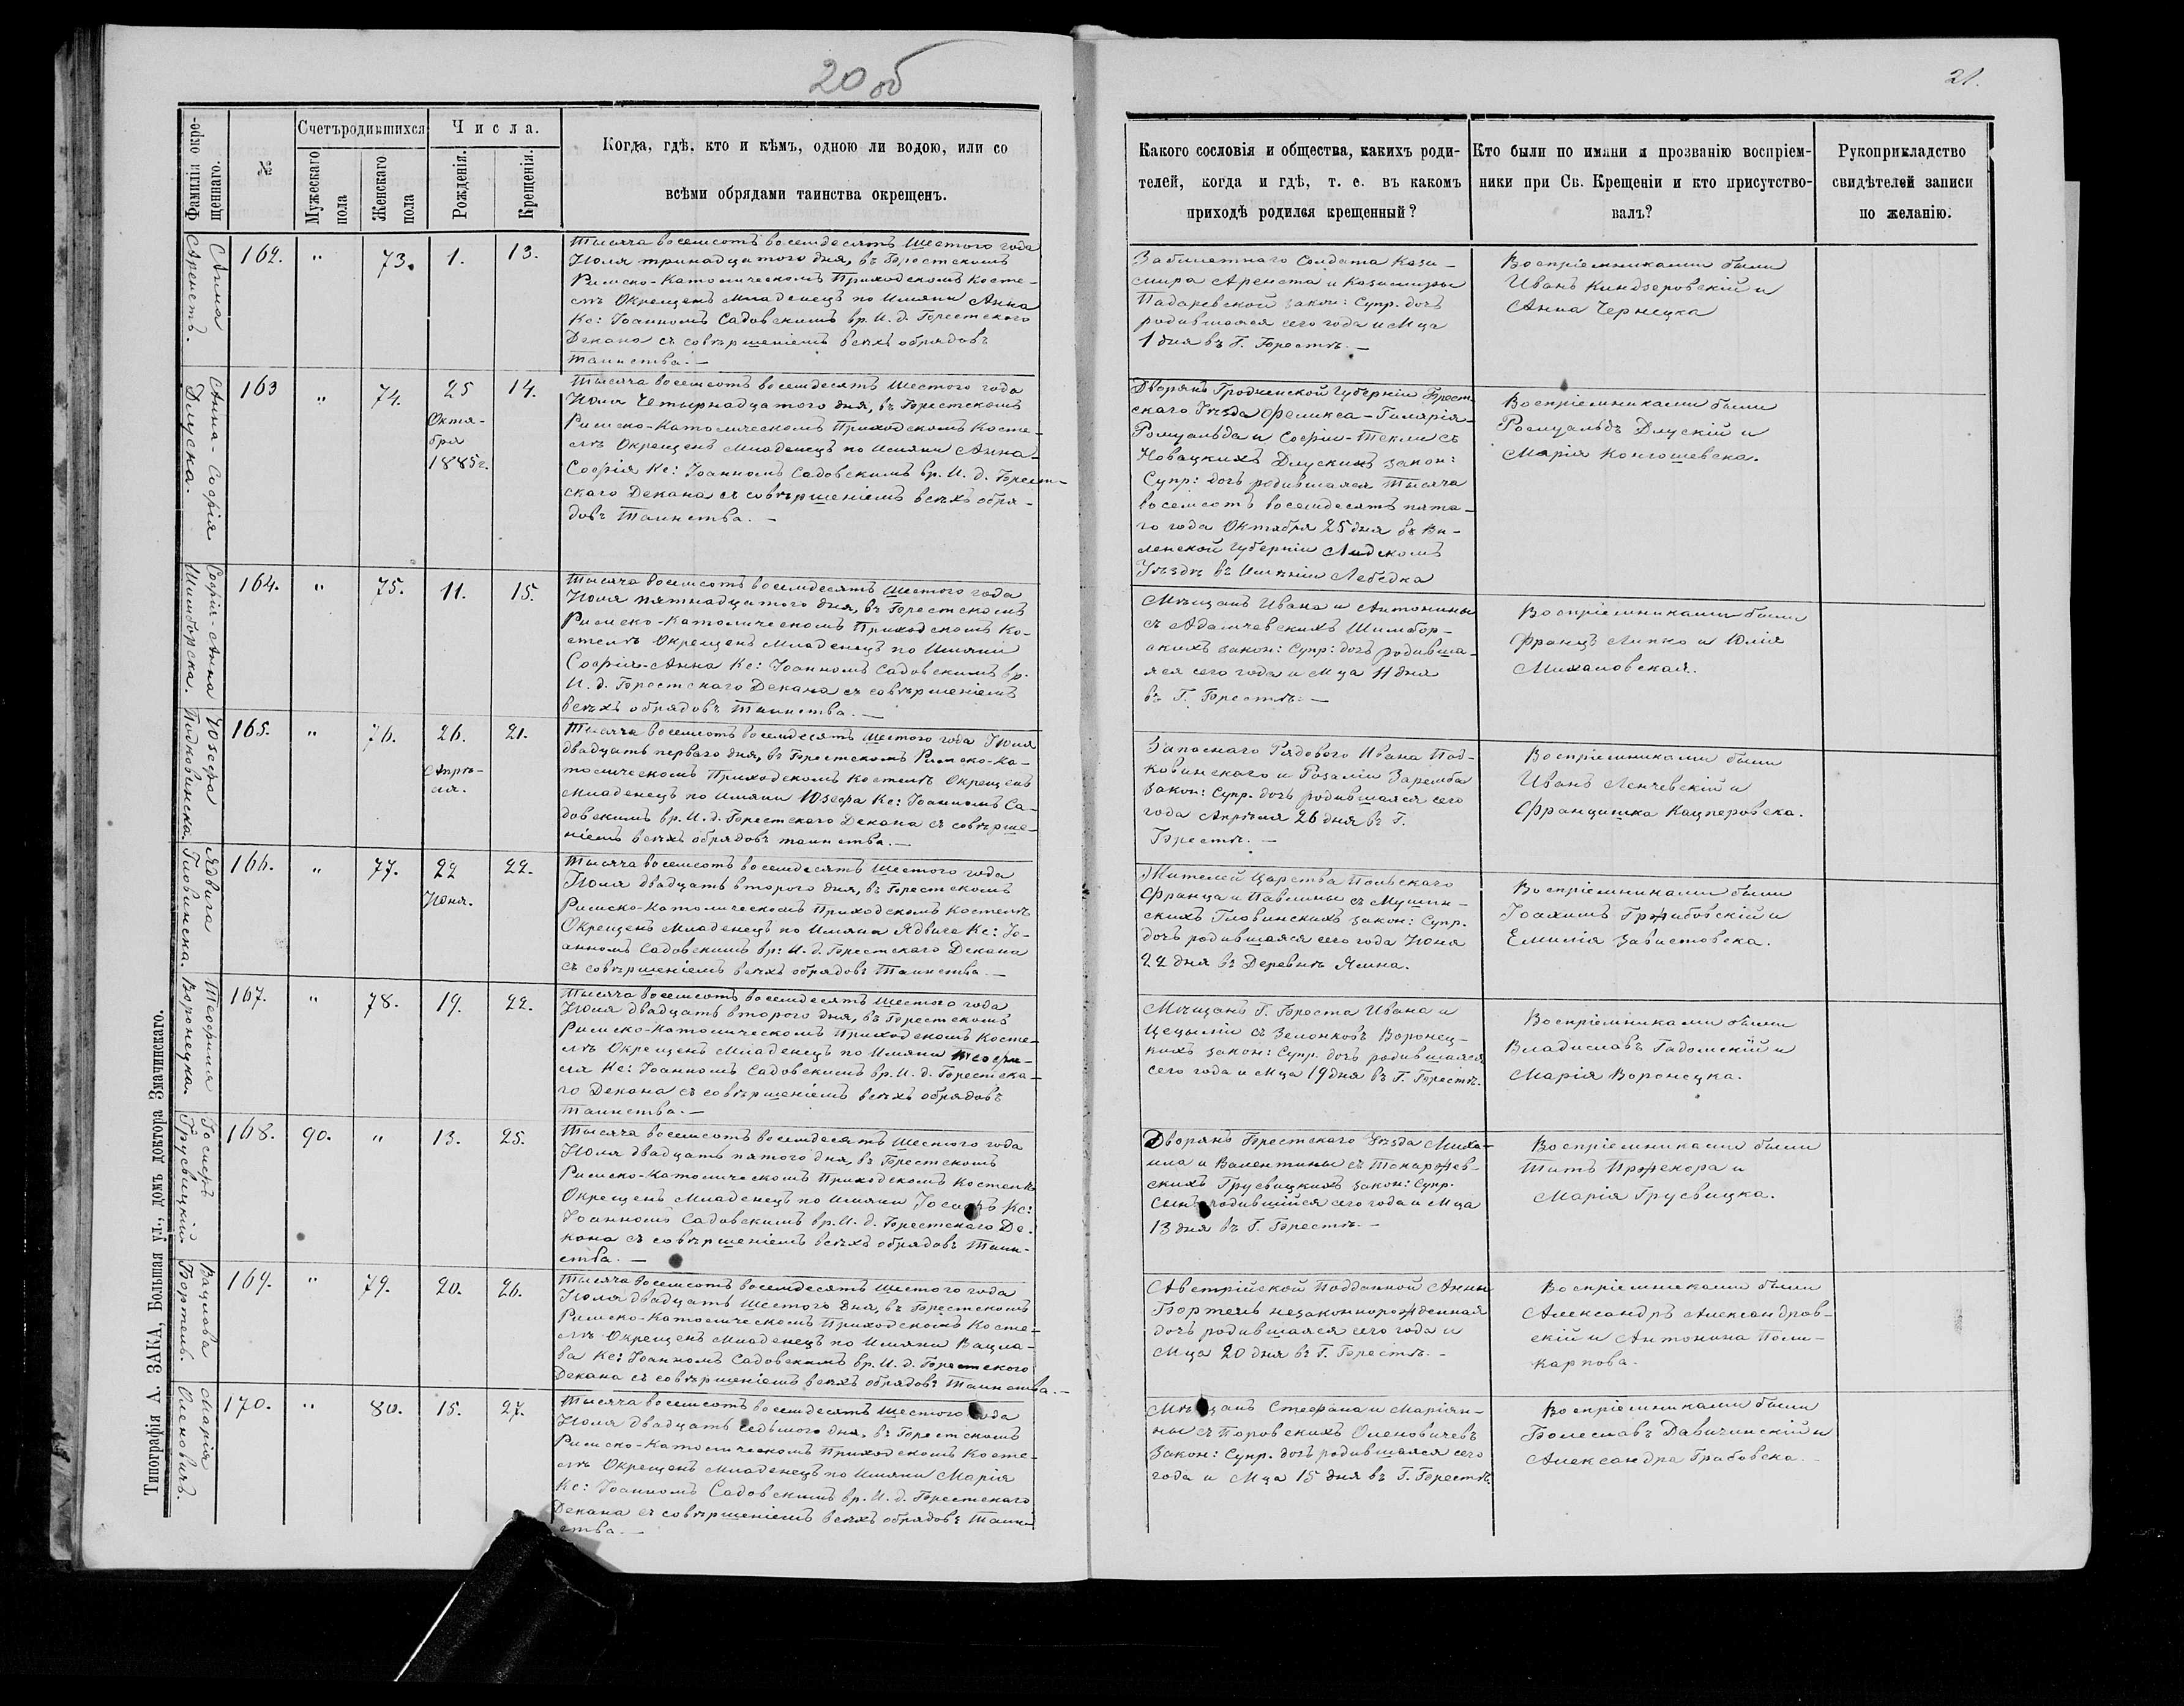 20 об
21.
Фамилія окре-
щеннаго.
№
Счетъ родившихся
Мужескаго
пола
Женскаго
пола
Числа.
Рожденія.
Крещенія.
Когда, гдѣ, кто и кѣмъ, одною ли водою, или со
всѣми обрядами таинства окрещен.
Какого сословія и общества, какихъ роди-
телей, когда и гдѣ, т. е. въ какомъ
приходѣ родился крещенный?
Кто были по имяни и прозванію воспріем-
ники при Св. Крещеніи и кто присутство-
валъ?
Рукоприкладство
свидѣтелей записи
по желанію.
Анна
Аренстъ.
162. " 73. 1. 13.
Тысяча восемсотъ восемдесятъ Шестого года
Июля тринадцатого дня, въ Брестскомъ
Римско-Католическомъ Приходскомъ Косте-
лѣ Окрещенъ Младенецъ по Имяни Анна
Кс: Іоанномъ Садовскимъ вр. И. д. Брестского
Декана съ совѣршеніемъ всѣхъ обрядовъ
таинства. —
Забилетнаго Солдата Кази-
мира Аренста и Казимиры
Падаревской закон: Супр. дочь
родившаяся сего года и Мца
1 дня въ Г. Брестѣ. —
Воспріемниками были
Иванъ Киндзеровскій и
Анна Чернецка
Анна-Софія
Длуска.
163 " 74. 25
Октя-
бря
1885 г.
14.
Тысяча восемсотъ восемдесятъ Шестого года
Июля Четырнадцатого дня, въ Брестскомъ
Римско-Католическомъ Приходскомъ Косте-
лѣ Окрещенъ Младенецъ по Имяни Анна-
Софія Кс: Іоанномъ Садовскимъ вр. И. д. Брест-
скаго Декана съ совѣршеніемъ всѣхъ обря-
довъ Таинства. —
Дворянъ Гродненской Губерніи Брест-
скаго Уѣзда Феликса-Гилярія-
Ромуальда и Софіи-Текли съ
Новацкихъ Длускихъ закон:
Супр: дочь родившаяся Тысяча
восемсотъ восемдесятъ пята-
го года Октября 25 дня въ Ви-
ленской Губерніи Лидскомъ
Уѣздѣ въ Имѣніи Лебедка
Воспріемниками были
Ромуальдъ Длускій и
Марія Контошевска.
Софія-Анна
Шимборска.
164. " 75. 11. 15.
Тысяча восемсотъ восемдесятъ Шестого года
Июля пятнадцатого дня, въ Брестскомъ
Римско-Католическомъ Приходскомъ Ко-
стелѣ Окрещенъ Младенецъ по Имяни
Софія-Анна Кс: Іоанномъ Садовскимъ вр.
И. д. Брестскаго Декана съ совѣршеніемъ
всѣхъ обрядовъ Таинства. —
Мѣщанъ Ивана и Антонины
съ Адамчевскихъ Шимбор-
скихъ закон: Супр: дочь родивша-
яся сего года и Мца 11 дня
въ Г. Брестѣ. —
Воспріемниками были
Францъ Липко и Юлія
Михаловская.
Юзефа
Подковинска.
165. " 76. 26.
Апрѣ-
ля.
21.
Тысяча восемсотъ восемдесятъ Шестого года Июля
двадцать перваго дня, въ Брестскомъ Римско-Ка-
толическомъ Приходскомъ Костелѣ Окрещенъ
Младенецъ по Имяни Юзефа Кс: Іоанномъ Са-
довскимъ вр. И. д. Брестскаго Декана съ совѣрше-
ніемъ всѣхъ обрядовъ таинства. —
Запаснаго Рядового Ивана Под-
ковинскаго и Розаліи Заремба
закон: Супр. дочь родившаяся сего
года Апрѣля 26 дня въ Г.
Брестѣ. —
Воспріемниками были
Иванъ Ленчевскій и
Францишка Кацперовска.
Ядвига
Гловинска.
166. " 77. 22
Июня.
22.
Тысяча восемсотъ восемдесятъ Шестого года
Июля двадцать второго дня, въ Брестскомъ
Римско-Католическомъ Приходскомъ Костелѣ
Окрещенъ Младенецъ по Имяни Ядвига Кс: Іо-
анномъ Садовскимъ вр: И. д. Брестскаго Декана
съ совѣршеніемъ всѣхъ обрядовъ Таинства. —
Жителей Царства Польскаго
Франца и Павлины съ Мушин-
скихъ Гловинскихъ закон: Супр.
дочь родившаяся сего года Июня
22 дня въ Деревнѣ Ямна.
Воспріемниками были
Іоахимъ Гржибовскій и
Емилія Завистовска.
Теофилия
Воронецка.
167. " 78. 19. 22.
Тысяча восемсотъ восемдесятъ Шестого года
Июля двадцать второго дня, въ Брестскомъ
Римско-Католическомъ Приходскомъ Косте-
лѣ Окрещенъ Младенецъ по Имяни Теофи-
ля Кс: Іоанномъ Садовскимъ вр. И. д. Брестска-
го Декана съ совѣршеніемъ всѣхъ обрядовъ
Таинства. —
Мѣщанъ Г. Бреста Ивана и
Цецыліи съ Зелонковъ Воронец-
кихъ закон: Супр. дочь родившаяся
сего года и Мца 19 дня въ Г. Брестѣ.
Воспріемниками были
Владиславъ Гадомскій и
Марія Воронецка.
Іосифъ
Грусвицкій
168. 90. " 13. 25.
Тысяча восемсотъ восемдесятъ Шестого года
Июля двадцать пятого дня, въ Брестскомъ
Римско-Католическомъ Приходскомъ Костелѣ
Окрещенъ Младенецъ по Имяни Іосифъ Кс:
Іоанномъ Садовскимъ вр. И. д. Брестскаго Де-
кана съ совѣршеніемъ всѣхъ обрядовъ Таин-
ства. —
Дворянъ Брестскаго Уѣзда Миха-
ила и Валентины съ Токаржев-
скихъ Грусвицкихъ закон: Супр.
Сынъ родившійся сего года и Мца
13 дня въ Г. Брестѣ. —
Воспріемниками были
Титъ Пржекора и
Марія Грусвицка.
Вацлова
Бортель.
169. " 79. 20. 26.
Тысяча восемсотъ восемдесятъ Шестого года
Июля двадцать Шестого дня, въ Брестскомъ
Римско-Католическомъ Приходскомъ Косте-
лѣ Окрещенъ Младенецъ по Имяни Вацла-
ва Кс: Іоанномъ Садовскимъ вр. И. д. Брестского
Декана съ совѣршеніемъ всѣхъ обрядовъ Таинства. —
Австрійской Подданной Анны
Бортель незаконнорожденная
дочь родившаяся сего года и
Мца 20 дня въ Г. Брестѣ. —
Воспріемниками были
Александръ Александров-
скій и Антонина Поли-
карпова.
Марія
Оленовичъ.
170. " 80. 15. 27.
Тысяча восемсотъ восемдесятъ Шестого года
Июля двадцать седьмого дня, въ Брестскомъ
Римско-Католическомъ Приходскомъ Косте-
лѣ Окрещенъ Младенецъ по Имяни Марія
Кс: Іоанномъ Садовскимъ вр. И. д. Брестскаго
Декана съ совѣршеніемъ всѣхъ обрядовъ Таин-
ства. —
Мѣщанъ Стефана и Маріян-
ны съ Поровскихъ Оленовичевъ
Закон: Супр. дочь родившаяся сего
года и Мца 15 дня въ Г. Брестѣ.
Воспріемниками были
Болеславъ Давичинскій и
Александра Грабовска.
Типографія А. ЗАКА, Большая ул., домъ доктора Значинскаго.